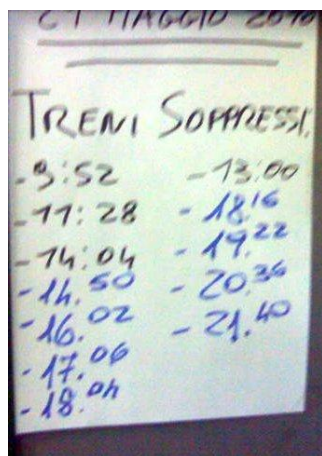 MAGGIO
TRENI SOPPRESSI
- 9:52
- 11:28
- 14:04
- 14.50
- 16.02
- 17.06
- 18.04
- 13:00
- 18.16
- 19.22
- 20.36
- 21.40